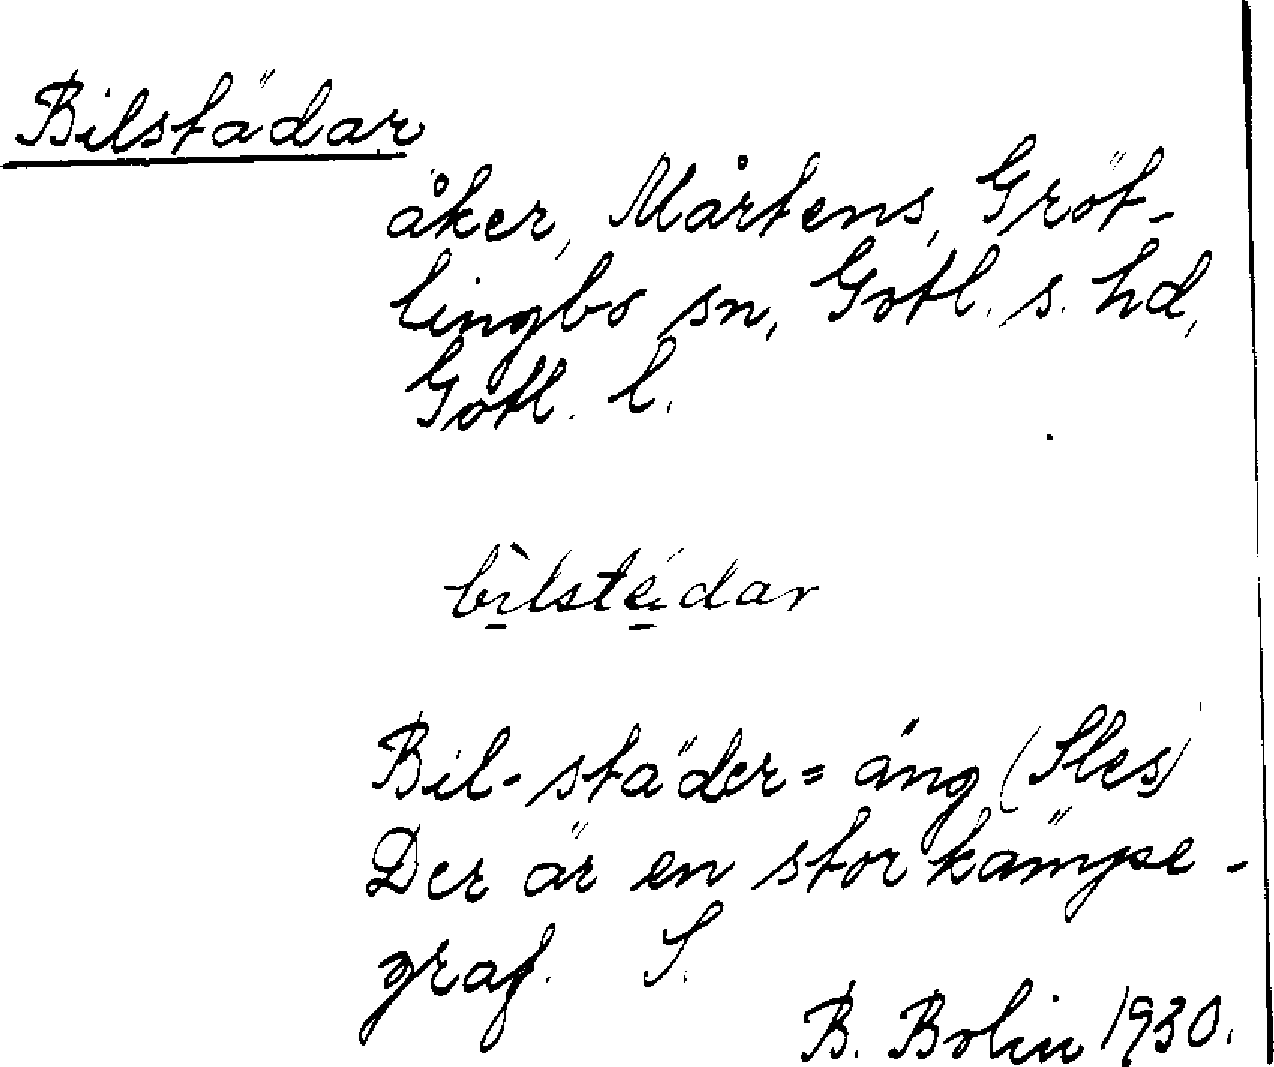 Bilstädar
åker, Mårtens, Gröt-
lingbo sn, Gotl. s. hd,
Gotl. l.
bìlstédar
Bil-städer = äng (Sles)
Der är en stor kämpe-
graf. S.
B. Bolin 1930.